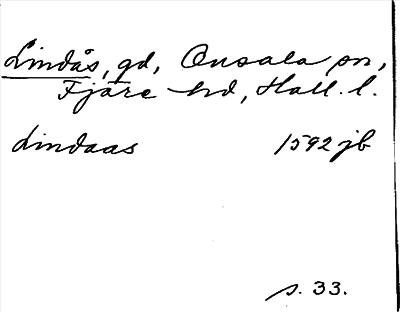 Lindås, gd, Onsala sn,
Fjäre hd, Hall. l.
Lindaas 1592 jb
s. 33.